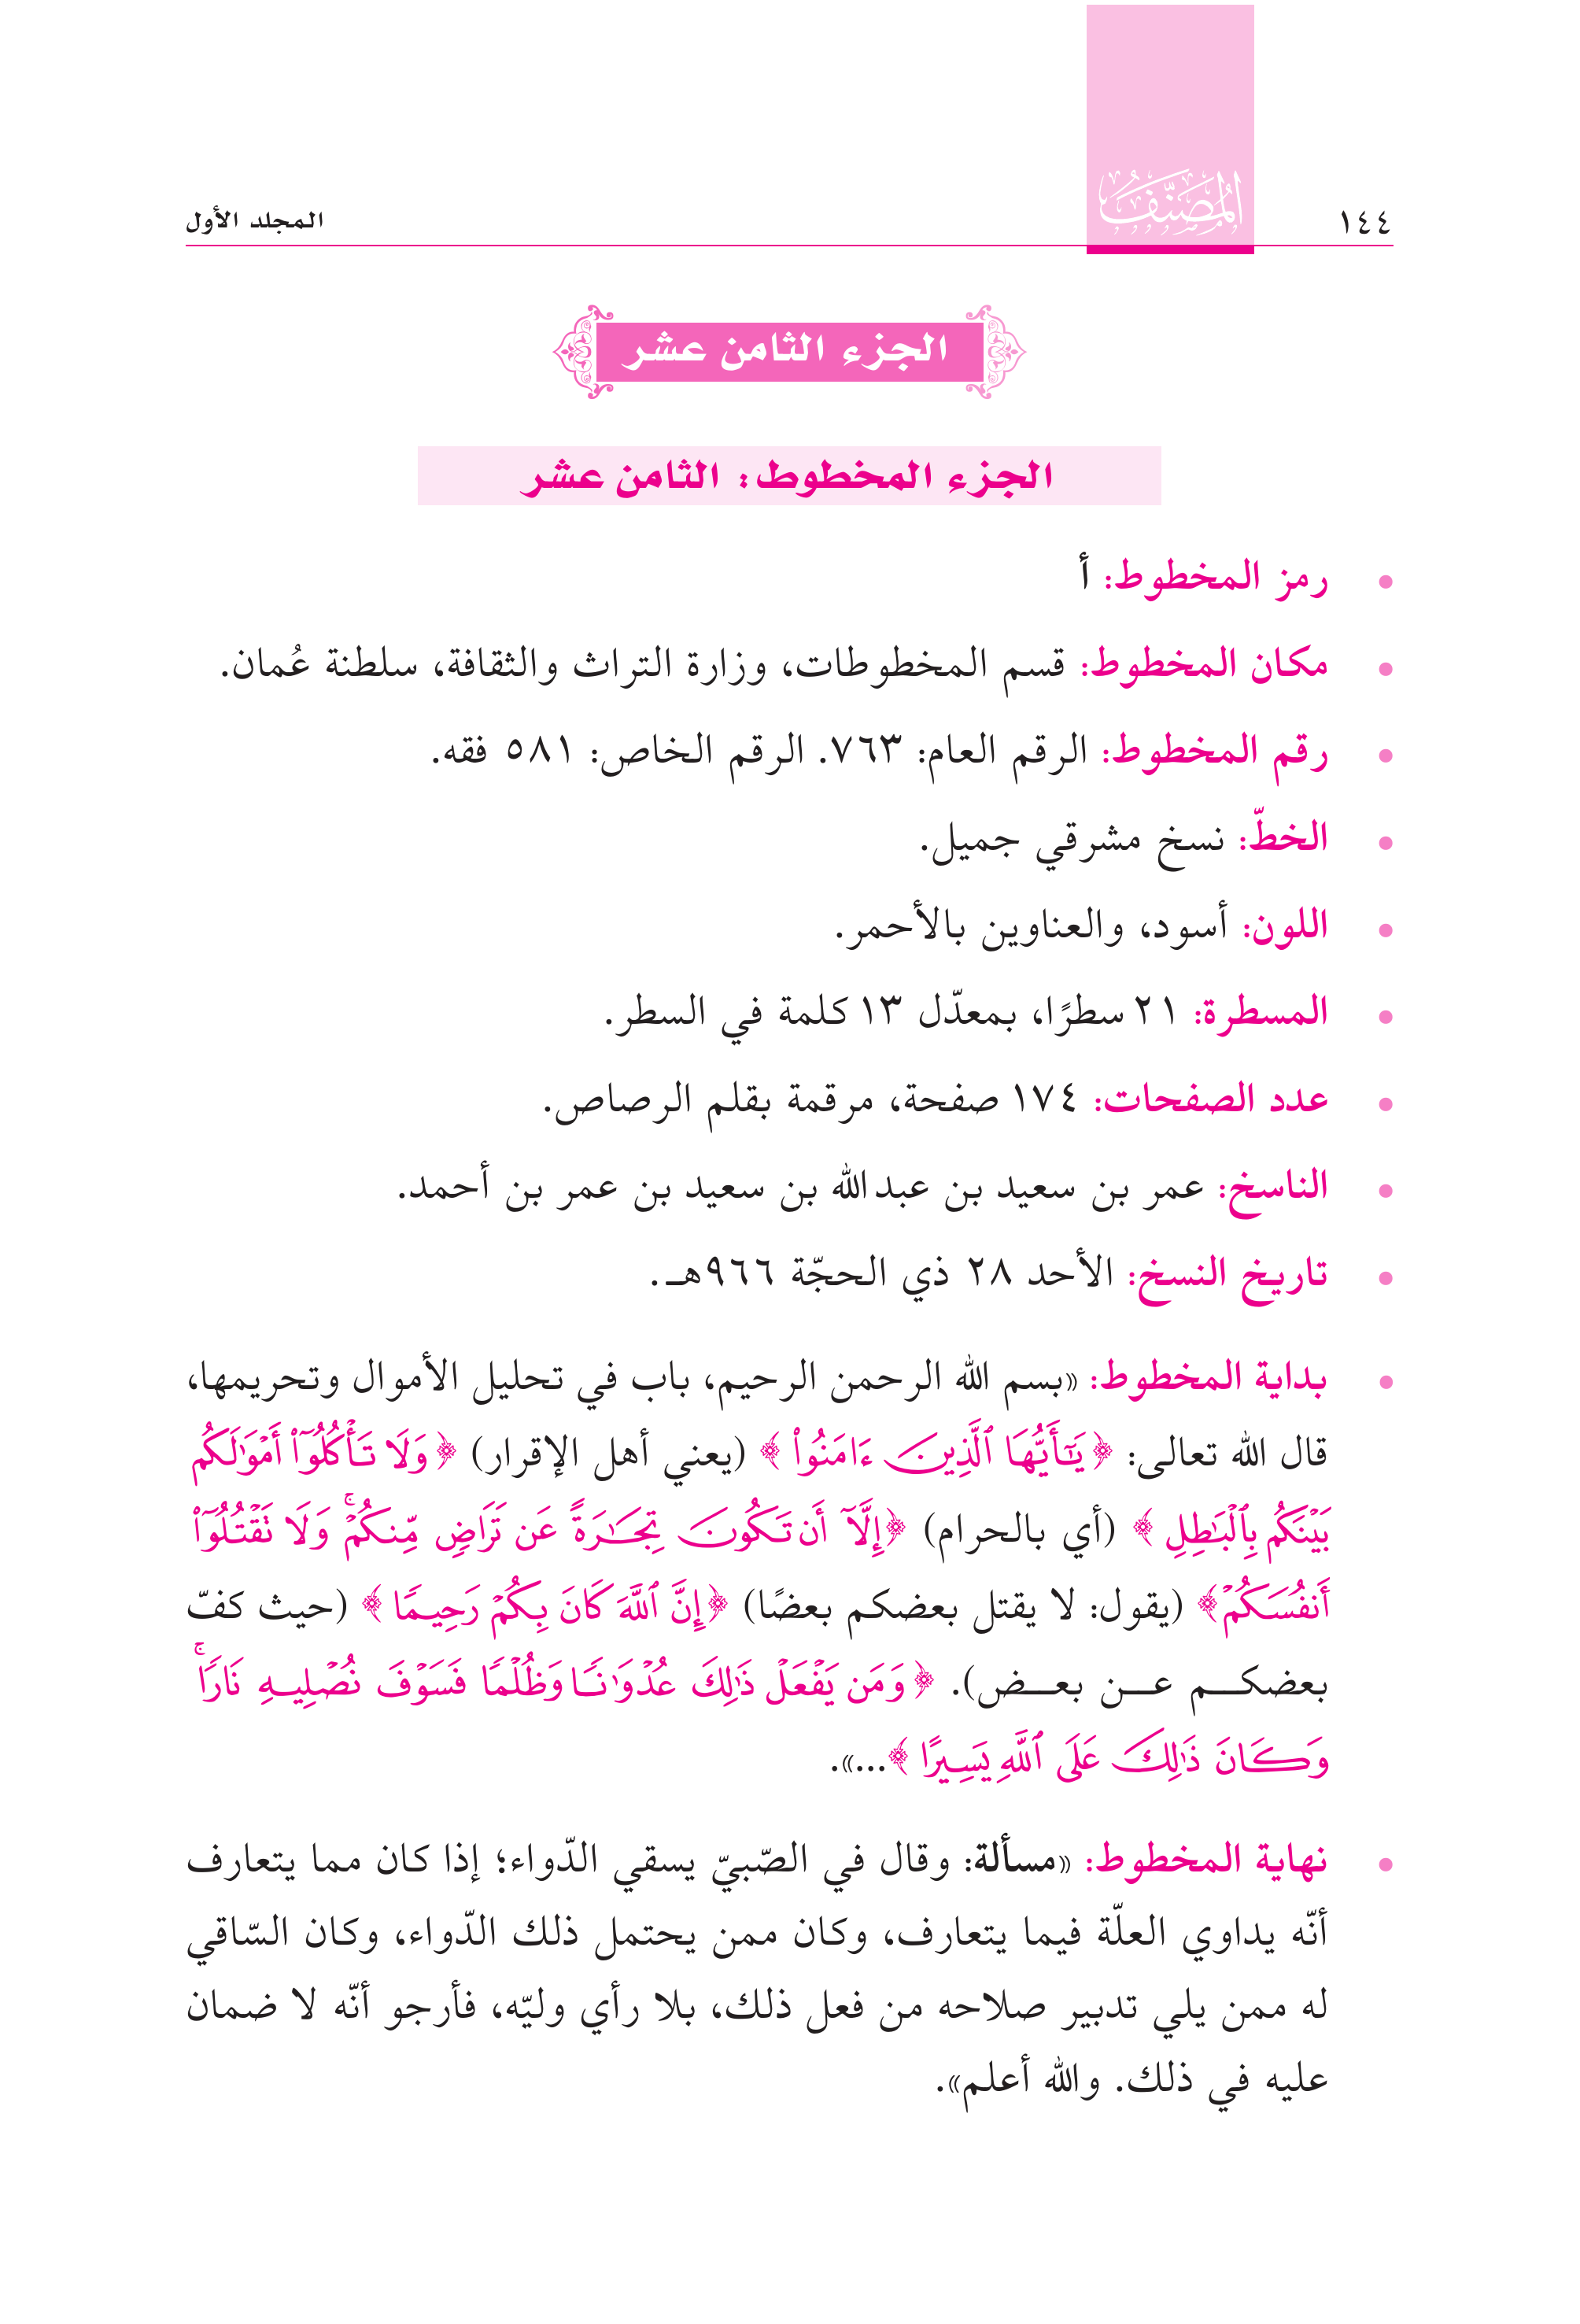 ١٤٤
المُصَنَّفُ
المجلد الأول
الجزء الثامن عشر
الجزء المخطوط: الثامن عشر
• رمز المخطوط: أ
• مكان المخطوط: قسم المخطوطات، وزارة التراث والثقافة، سلطنة عُمان.
• رقم المخطوط: الرقم العام: ٧٦٣. الرقم الخاص: ٥٨١ فقه.
• الخطّ: نسخ مشرقي جميل.
• اللون: أسود، والعناوين بالأحمر.
• المسطرة: ٢١ سطرًا، بمعدّل ١٣ كلمة في السطر.
• عدد الصفحات: ١٧٤ صفحة، مرقمة بقلم الرصاص.
• الناسخ: عمر بن سعيد بن عبدالله بن سعيد بن عمر بن أحمد.
• تاريخ النسخ: الأحد ٢٨ ذي الحجّة ٩٦٦هـ.
• بداية المخطوط: «بسم الله الرحمن الرحيم، باب في تحليل الأموال وتحريمها،
قال الله تعالى: ﴿يَٰٓأَيُّهَا ٱلَّذِينَ ءَامَنُواْ﴾ (يعني أهل الإقرار) ﴿وَلَا تَأۡكُلُوٓاْ أَمۡوَٰلَكُم
بَيۡنَكُم بِٱلۡبَٰطِلِ﴾ (أي بالحرام) ﴿إِلَّآ أَن تَكُونَ تِجَٰرَةً عَن تَرَاضٖ مِّنكُمۡۚ وَلَا تَقۡتُلُوٓاْ
أَنفُسَكُمۡ﴾ (يقول: لا يقتل بعضكم بعضًا) ﴿إِنَّ ٱللَّهَ كَانَ بِكُمۡ رَحِيمٗا﴾ (حيث كفّ
بعضكم عن بعض). ﴿وَمَن يَفۡعَلۡ ذَٰلِكَ عُدۡوَٰنٗا وَظُلۡمٗا فَسَوۡفَ نُصۡلِيهِ نَارٗاۚ
وَكَانَ ذَٰلِكَ عَلَى ٱللَّهِ يَسِيرًا﴾...».
• نهاية المخطوط: «مسألة: وقال في الصّبيّ يسقي الدّواء؛ إذا كان مما يتعارف
أنّه يداوي العلّة فيما يتعارف، وكان ممن يحتمل ذلك الدّواء، وكان السّاقي
له ممن يلي تدبير صلاحه من فعل ذلك، بلا رأي وليّه، فأرجو أنّه لا ضمان
عليه في ذلك. والله أعلم».